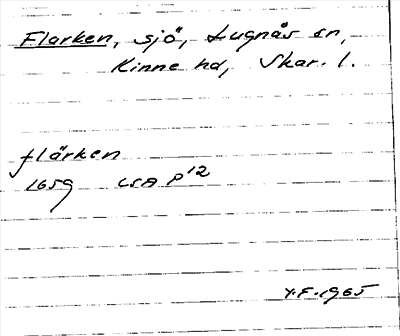 Flarken, sjö, Lugnås sn,
Kinne hd, Skar. l.
flärken
1659 LSA P12
Y.F. 1965